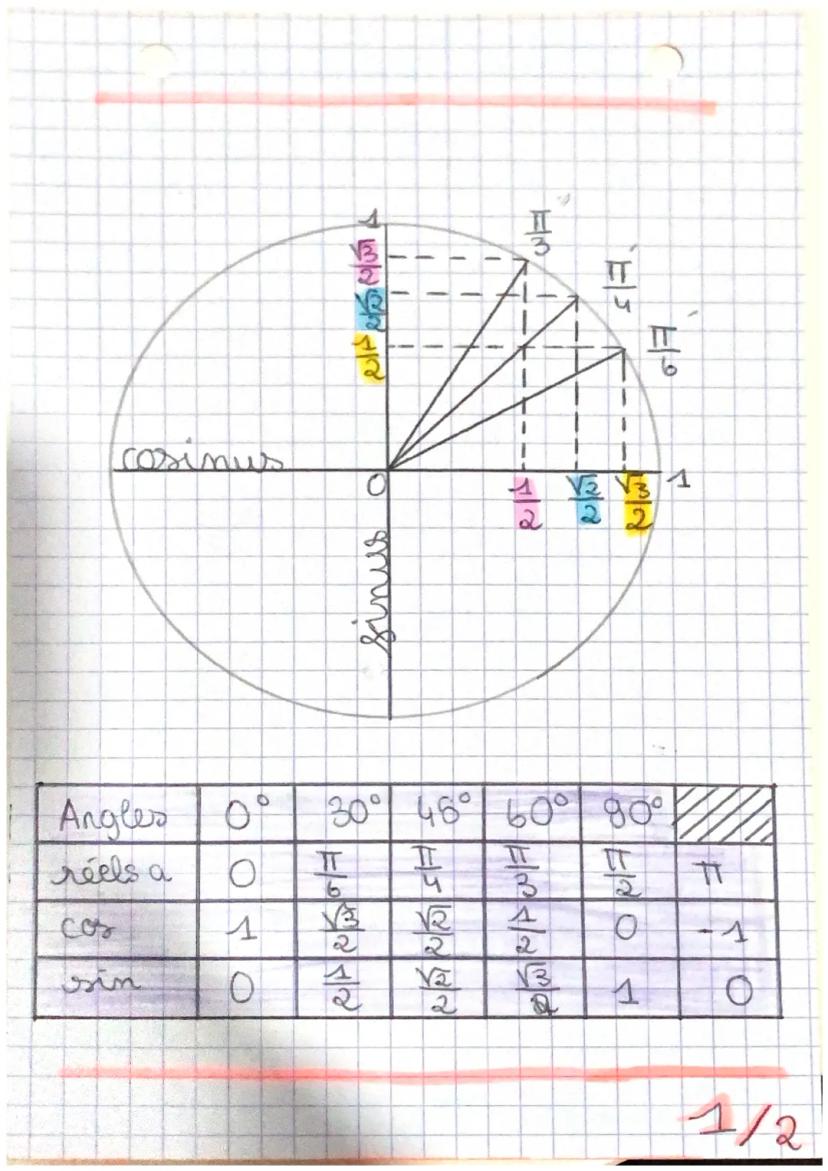 1
π/3
√3/2
π/4
√2/2
π/6
1/2
cosinus
0
1
1/2 √2/2 √3/2
sinus
Angles 0° 30° 46° 60° 90°
réels a 0 π/6 π/4 π/3 π/2 π
cos 1 √3/2 √2/2 1/2 0 -1
sin 0 1/2 √2/2 √3/2 1 0
1/2